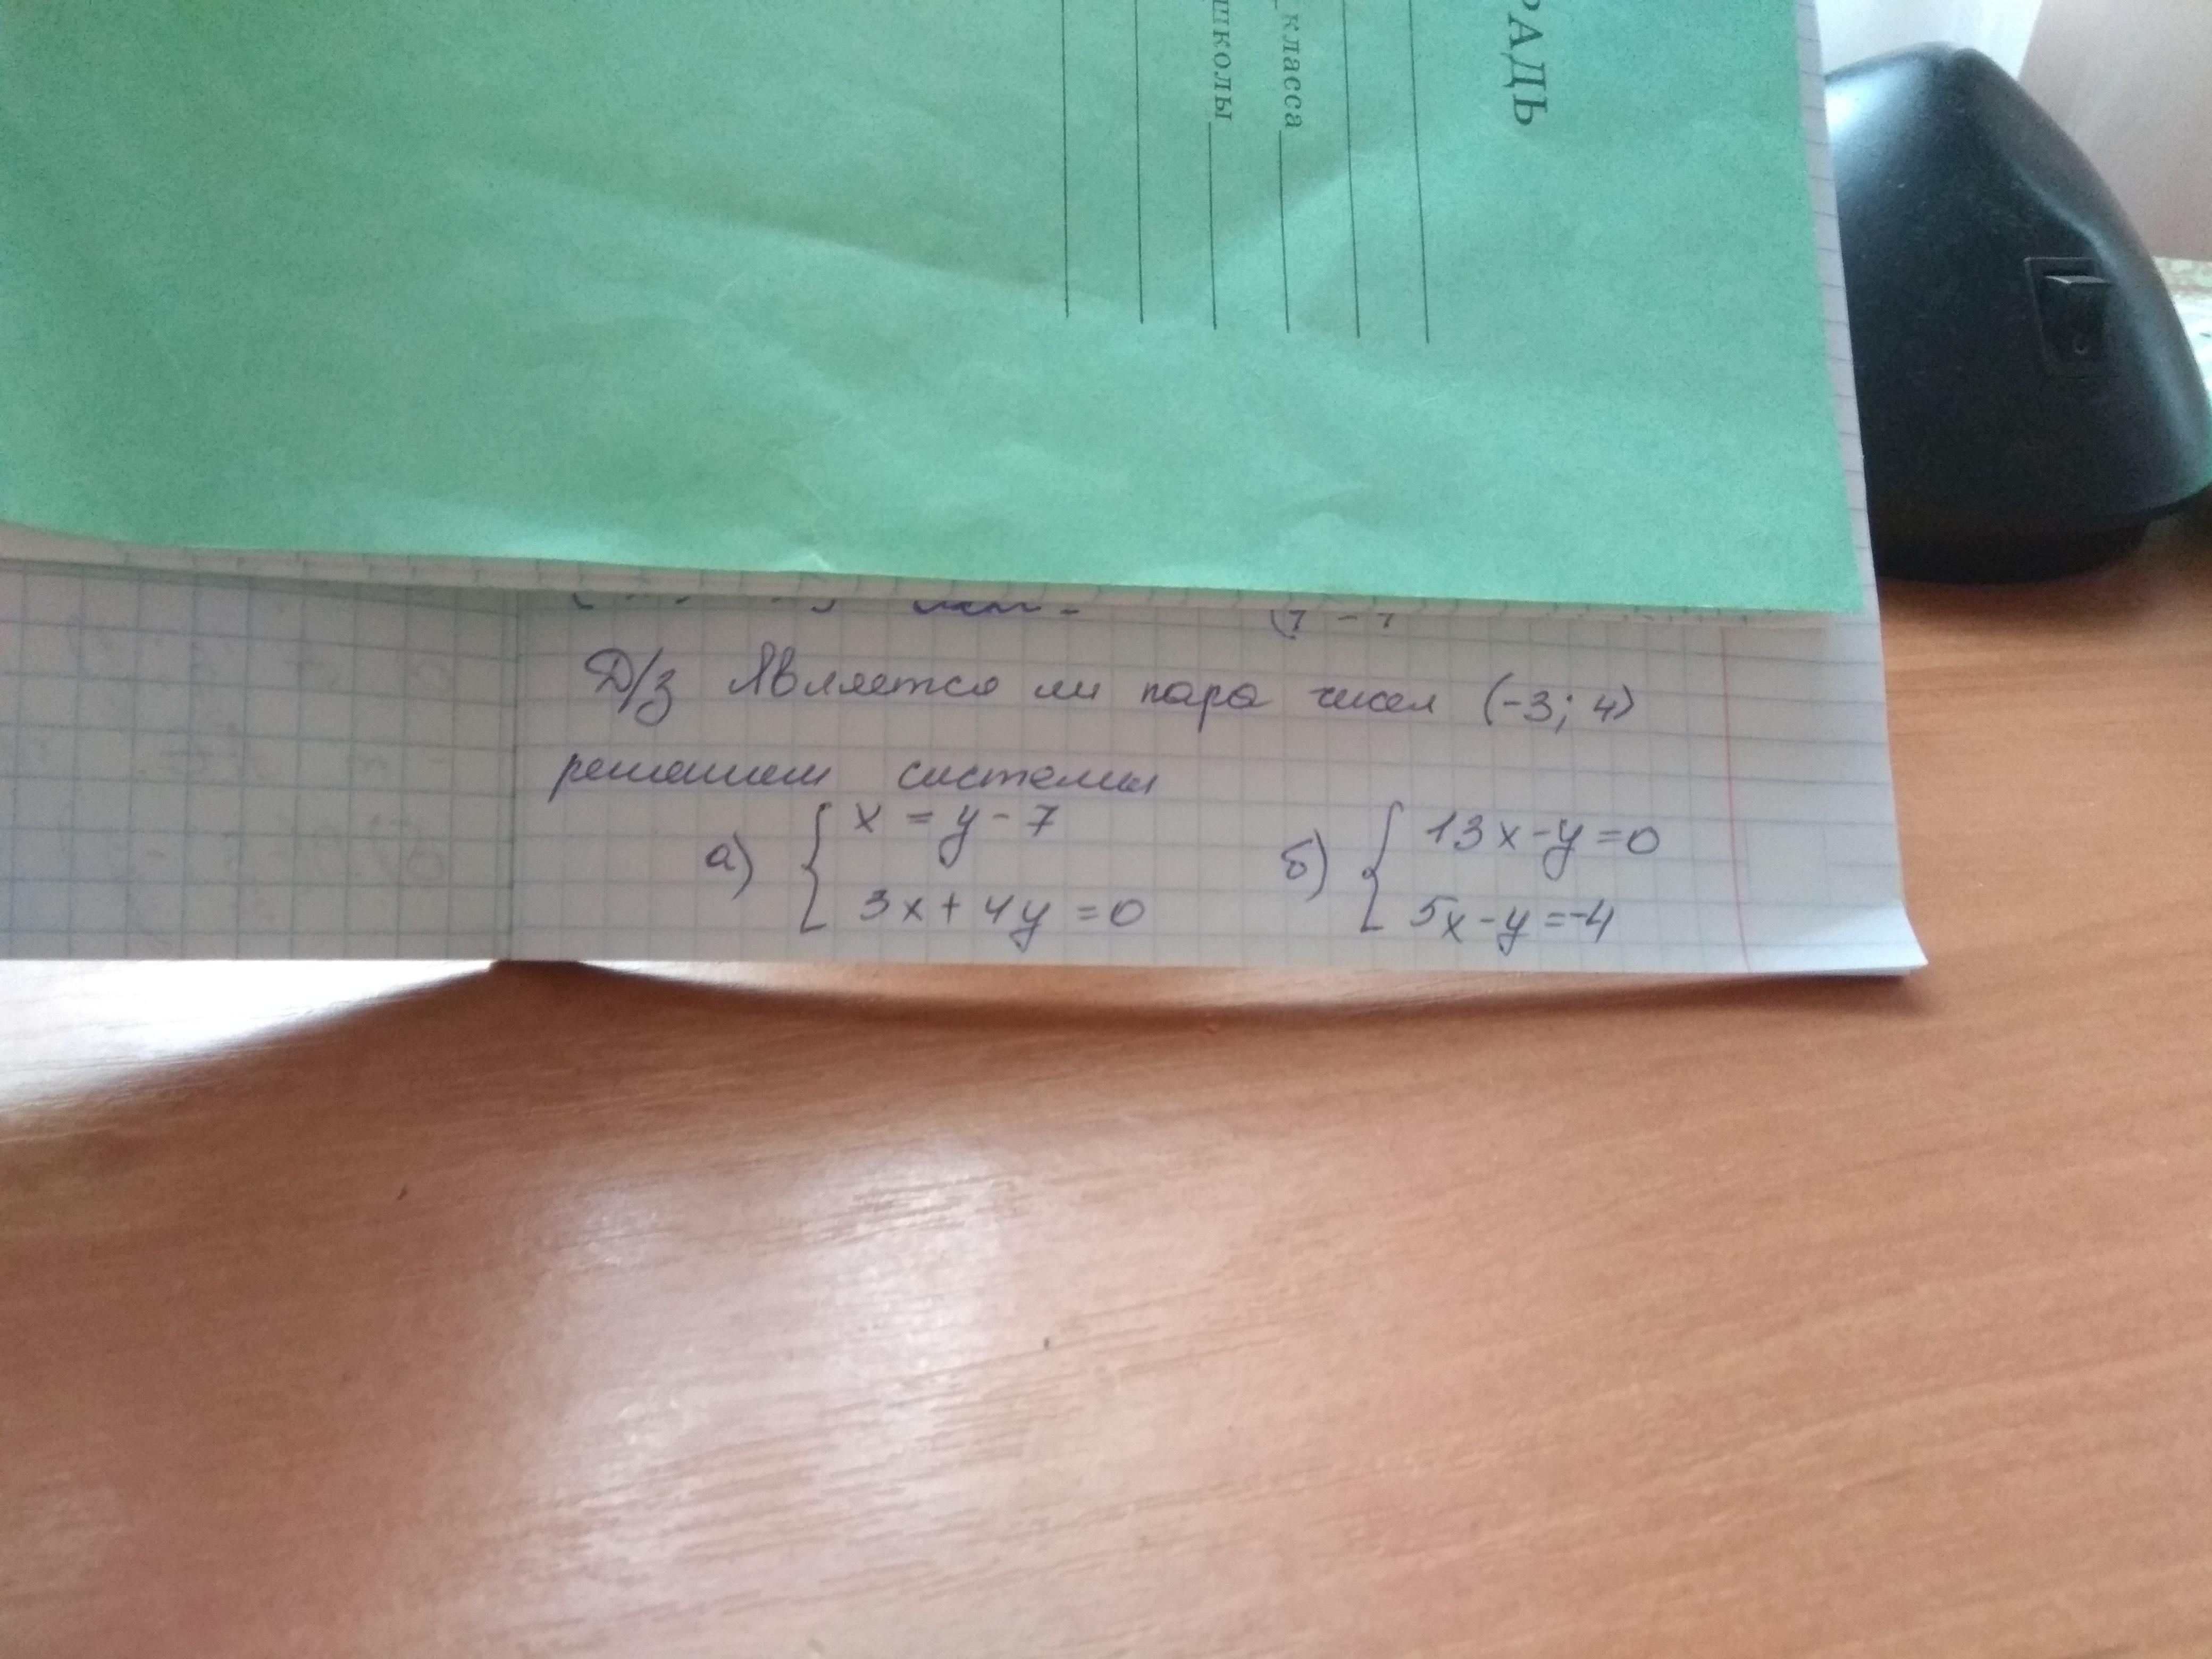 РАДЬ
класса
школы
Д/з Является ли пара чисел (-3; 4)
решением системы
а) { x = y - 7
3x + 4y = 0
б) { 13x - y = 0
5x - y = -4